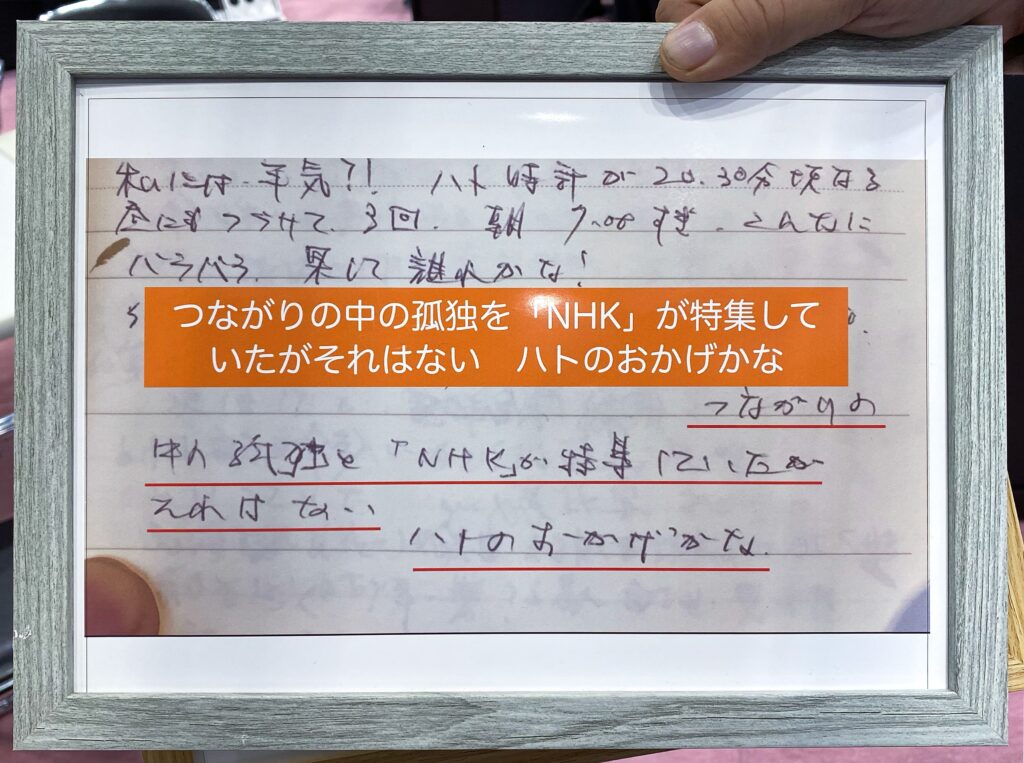 私には平気?! ハト時計が20.30分頃なる
つづけて、3回. 朝 7.00すぎ. こんなに
バラバラ. 果して誰れかな!
つながりの中の孤独を「NHK」が特集して
いたがそれはない ハトのおかげかな
つながりの
中の孤独を「NHK」が特集していたが
それはない
ハトのおかげかな.